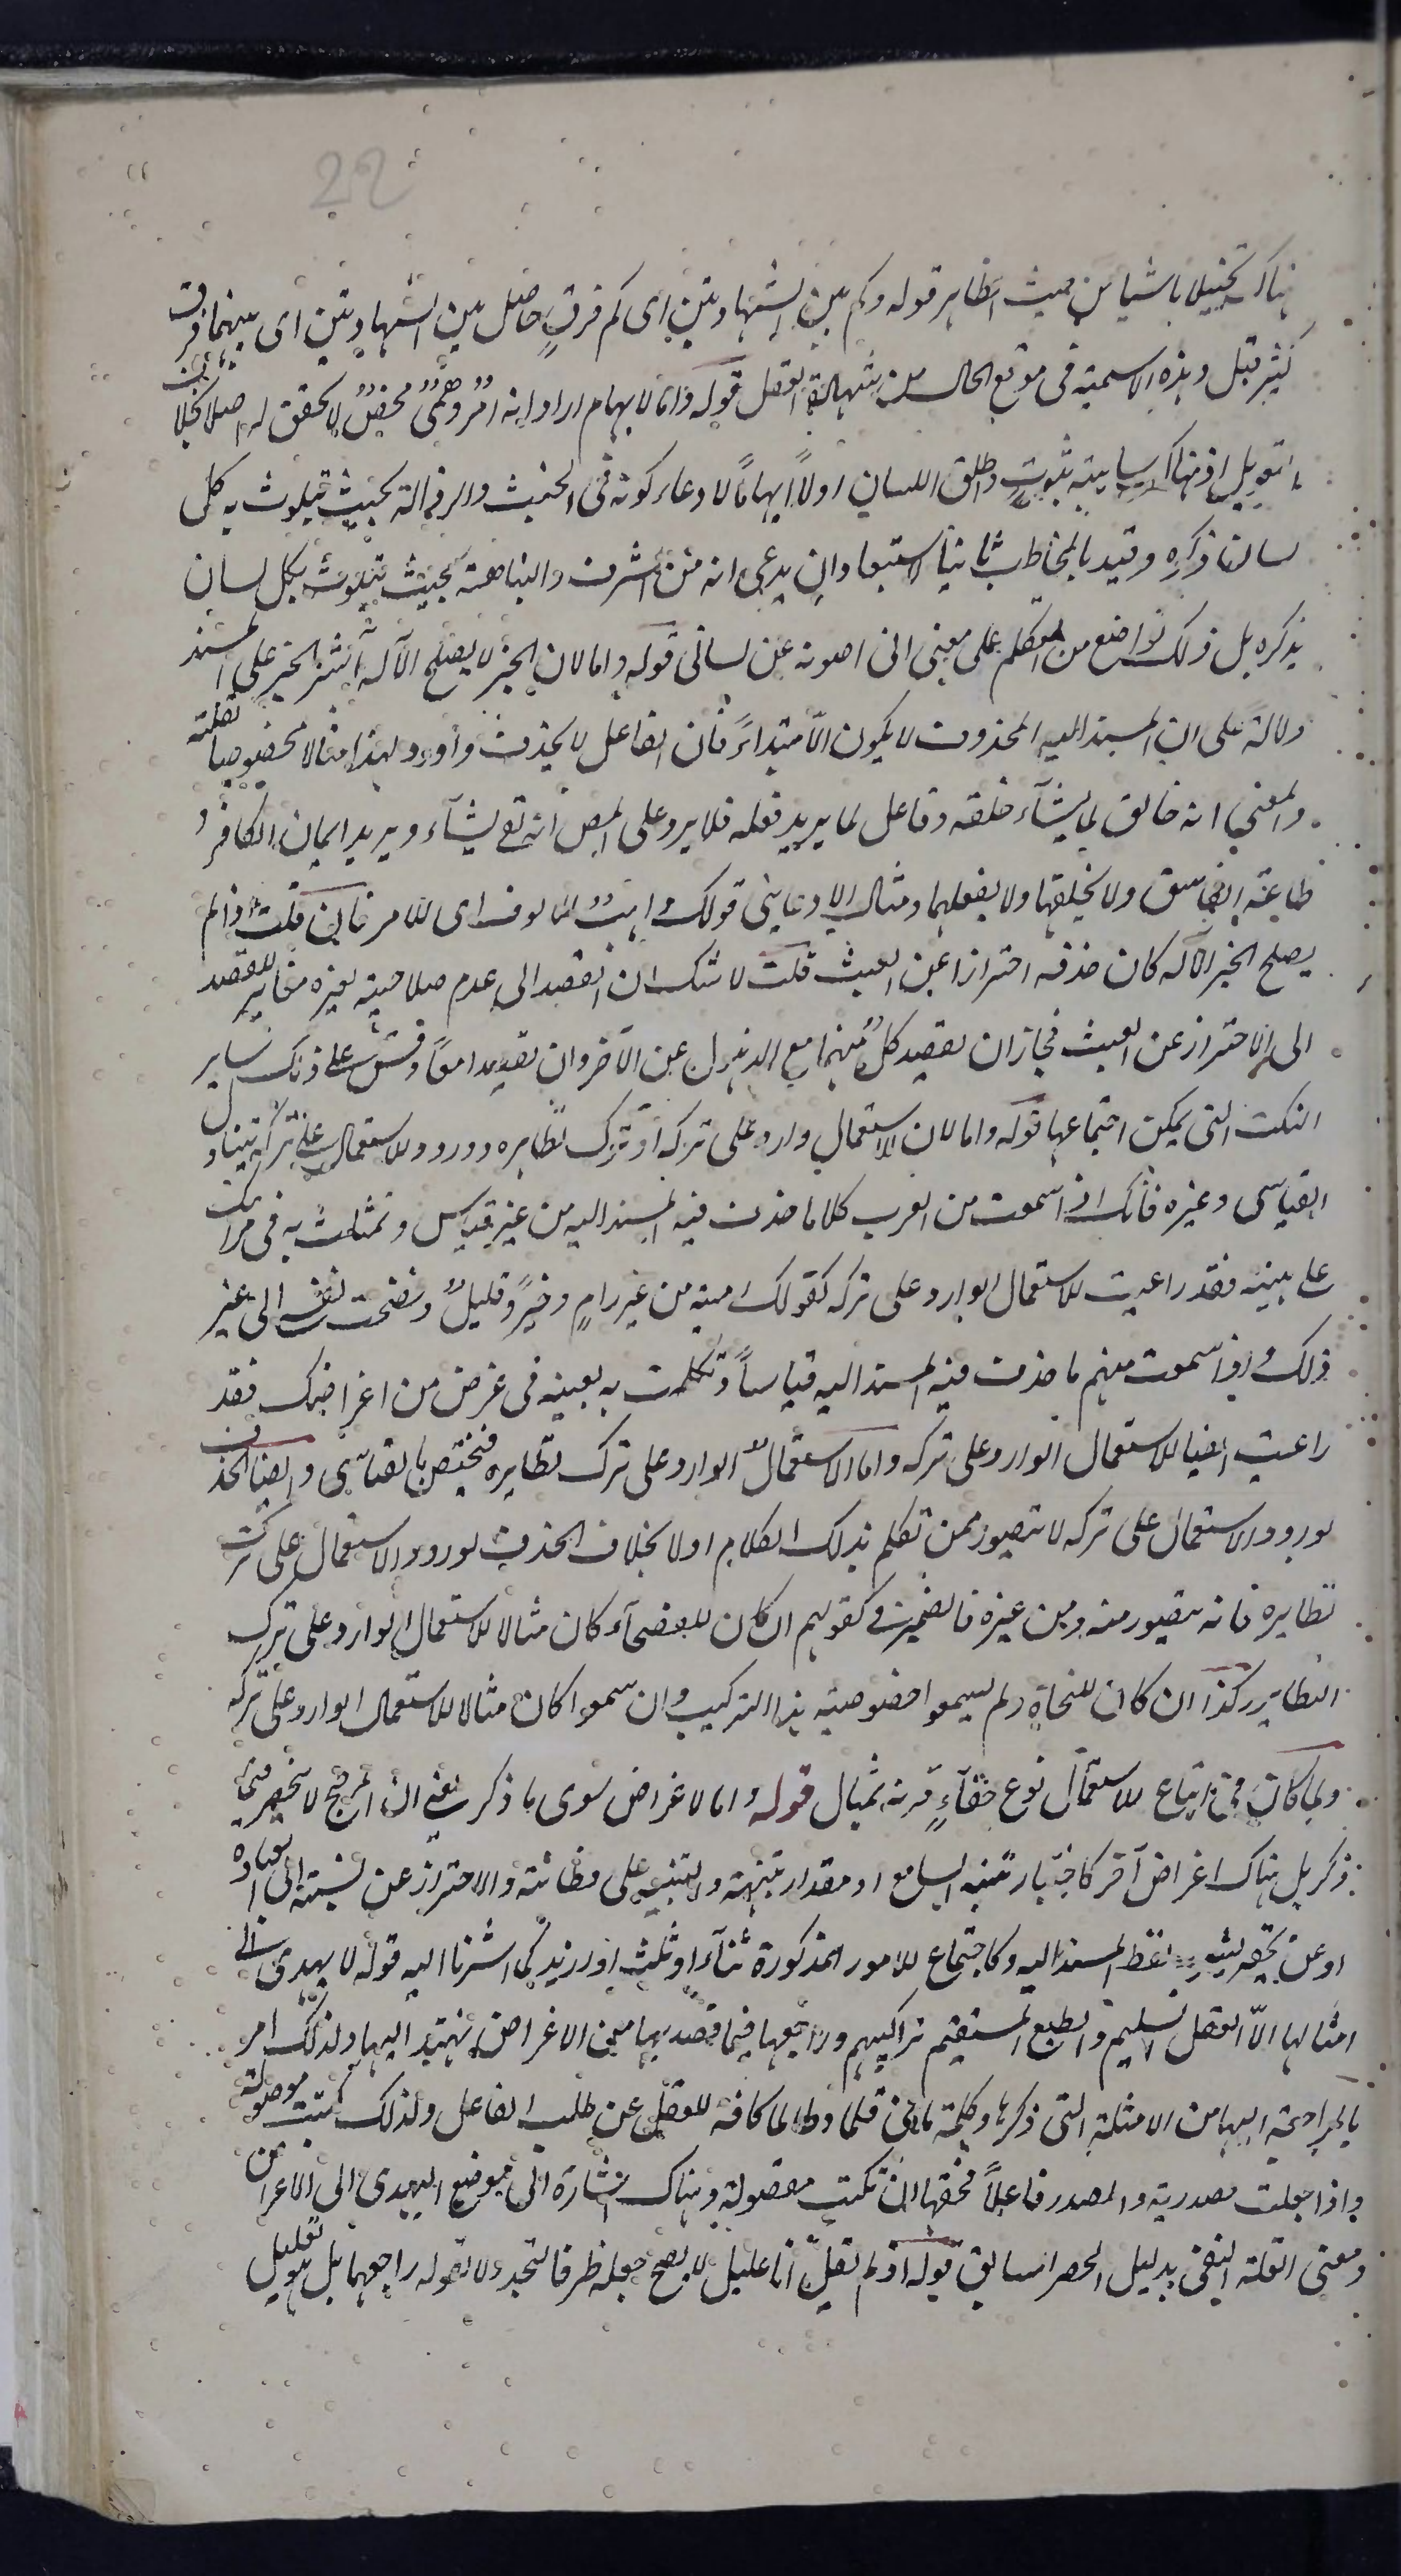 22
هناك تخييلا ناشيا من حيث الظاهر قوله وكم بين الشهادتين اى كم فرق حاصل بين الشهادتين اى بينهما فرق
كثير قيل وهذه الاسمية فى موقع الحال من شهادة العقل قوله واما لايهام اراد انه امر وهمى محض لا تحقق له اصلا بخلاف
التعويل اذ هناك شايبة ثبوت واطلق اللسان اولا ايهاما لادعاء كونه فى الخبث والرذالة بحيث يتلوث به كل
لسان ذاكره وقيد بالمخاطب ثانيا لاستبعاد ان يدعى انه من الشرف والنباهة بحيث يتلوث بكل لسان
يذكره بل ذلك تواضع من المتكلم على معنى انى اصونه عن لسانى قوله واما لان الخبر لا يصلح الا له آثر الخبر على المسند
دلالة على ان المسند اليه المحذوف لا يكون الا مبتداء فان الفاعل لا يحذف واورد لهذا مثالا مخصوصا
والمعنى انه خالق لما يشآء خلقه وفاعل لما يريد فعله فلا يرد على المص انه تع يشآء ويريد ايمان الكافر و
طاعة الفاسق ولا يخلقها ولا يفعلهما ومثال الادعايى قولك وهاب الالوف اى الامر فان قلت اذا لم
يصلح الخبر الا له كان حذفه احترازا عن العبث قلت لا شك ان القصد الى عدم صلاحيته لغيره مغاير للقصد
الى الاحتراز عن العبث فجاز ان يقصد كل منهما مع الذهول عن الآخر وان يقصدا معا وقس على ذلك ساير
النكت التى يمكن اجتماعها قوله واما لان الاستعمال وارد على تركه او ترك نظايره وورود الاستعمال على تركه يتناول
القياسى وغيره فانك اذا سمعت من العرب كلاما حذف فيه المسند اليه من غير قياس وتمثلت به فى مرامك
على بينه فقد راعيت الاستعمال الوارد على تركه كقولك رمية من غير رام وخير وقليل وفضحت نفسى الى غير
ذلك واذا سمعت منهم ما حذف فيه المسند اليه قياسا وتكلمت به بعينه فى غرض من اغراضك فقد
راعيت ايضا الاستعمال الوارد على تركه واما الاستعمال الوارد على ترك نظايره فيختص بالقياسى وايضا الحذف
لورود الاستعمال على تركه لا يتصور ممن تكلم بذلك الكلام اولا بخلاف الحذف لورود الاستعمال على ترك
نظايره فانه يتصور منه ومن غيره فالضمير فى كقولهم ان كان للفصحآء كان مثالا للاستعمال الوارد على ترك
النظاير وكذا ان كان للنحاة ولم يسمعوا خصوصية هذا التركيب وان سمعوا كان مثالا للاستعمال الوارد على تركه
ولما كان فى اتباع الاستعمال نوع خفآء قرنه بمثال قوله واما لاغراض سوى ما ذكر يعنى ان المرجح لا ينحصر فيما
ذكر بل هناك اغراض آخر كاختبار تنبه السامع او مقدار تنبهه والتنبيه على فطانته والاحتراز عن نسبته الى العبادة
او عن تحقير شيء لفظ المسند اليه وكاجتماع الامور المذكورة ثنآء او ثلث او ازيد كما اشرنا اليه قوله لا يهدى الى
امثالها الا العقل السليم والطبع المستقيم تراكيبهم وراجعها فيما قصد بها من الاغراض يهتد اليها ولذلك امر
بالمراجعة اليها من الامثلة التى ذكرها وكلمة ما فى قلما وطالما كافة للفعل عن طلب الفاعل ولذلك كتبت موصولة
واذا جعلت مصدرية والمصدر فاعلا فحقها ان تكتب مفصولة وهناك اشارة الى موضع الهدى الى الاغراض
ومعنى القلة النفى بدليل الحصر السابق قوله اذ لم يقل انا عليل لا يصح جعله ظرفا لتجد ولا لقوله راجعهما بل هو تعليل